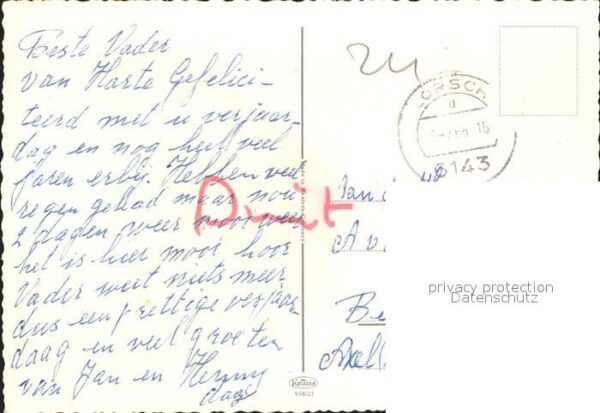 Beste Vader
van Harte Gefelici-
teerd met u verjaar-
dag en nog heel veel
jaren erbij. Hebben veel
regen gehad maar nou
2 dagen weer mooi weer
het is hier mooi hoor
Vader weet niets meer
dus een prettige verjaar
daag en veel groeten
van Jan en Henny
daag
24
ORSCH
d
16
5143
Druit
Jan
A v
Be
privacy protection
Datenschutz
Krüger
938/21